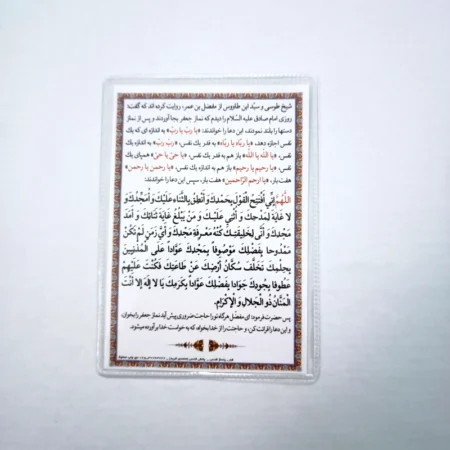 شیخ طوسی و سیّد ابن طاووس از مفضل بن عمر، روایت کرده اند که گفت:
روزی امام صادق علیه السّلام را دیدم که نماز جعفر بجا آوردند و پس از نماز
دستها را بلند نمودند، این دعا را خواندند: «یا رَبِّ یا رَبِّ» به اندازه ای که یك
نفس اجازه دهد، «یا ربّاه یا ربّاه» به قدر یك نفس، «ربّ ربّ» به اندازه یك
نفس، «یا الله یا الله» باز هم به قدر یك نفس، «یا حیّ یا حیّ» همپای یك
نفس، «یا رحیم یا رحیم» باز هم به اندازه یك نفس، «یا رحمن یا رحمن»
هفت بار، «یا ارحم الرّاحمین» هفت بار، سپس این دعا را خواندند:
اَللّهُمَّ اِنّی اَفْتَتِحُ الْقَوْلَ بِحَمْدِكَ وَ اَنْطِقُ بِالثَّناءِ عَلَیْكَ وَ اُمَجِّدُكَ وَ
لا غایَةَ لِمَدْحِكَ وَ اُثْنی عَلَیْكَ وَ مَنْ یَبْلُغُ غایَةَ ثَنائِكَ وَ اَمَدَ
مَجْدِكَ وَ اَنّی لِخَلیقَتِكَ کُنْهُ مَعْرِفَةِ مَجْدِكَ وَ اَیُّ زَمَنٍ لَمْ تَکُنْ
مَمْدُوحاً بِفَضْلِكَ مَوْصُوفاً بِمَجْدِكَ عَوّاداً عَلَی الْمُذْنِبینَ
بِحِلْمِكَ تَخَلَّفَ سُکّانُ اَرْضِكَ عَنْ طاعَتِكَ فَکُنْتَ عَلَیْهِمْ
عَطُوفاً بِجُودِكَ جَواداً بِفَضْلِكَ عَوّاداً بِکَرَمِكَ یا لا اِلهَ اِلّا اَنْتَ
الْمَنّانُ ذُو الْجَلالِ وَ الْاِکْرامِ.
پس حضرت فرمود: ای مفضّل هرگاه تو را حاجت ضروری پیش آید نماز جعفر را بخوان،
و این دعا را قرائت کن، و حاجتت را از خدا بخواه، که به خواست خدا برآورده میشود.